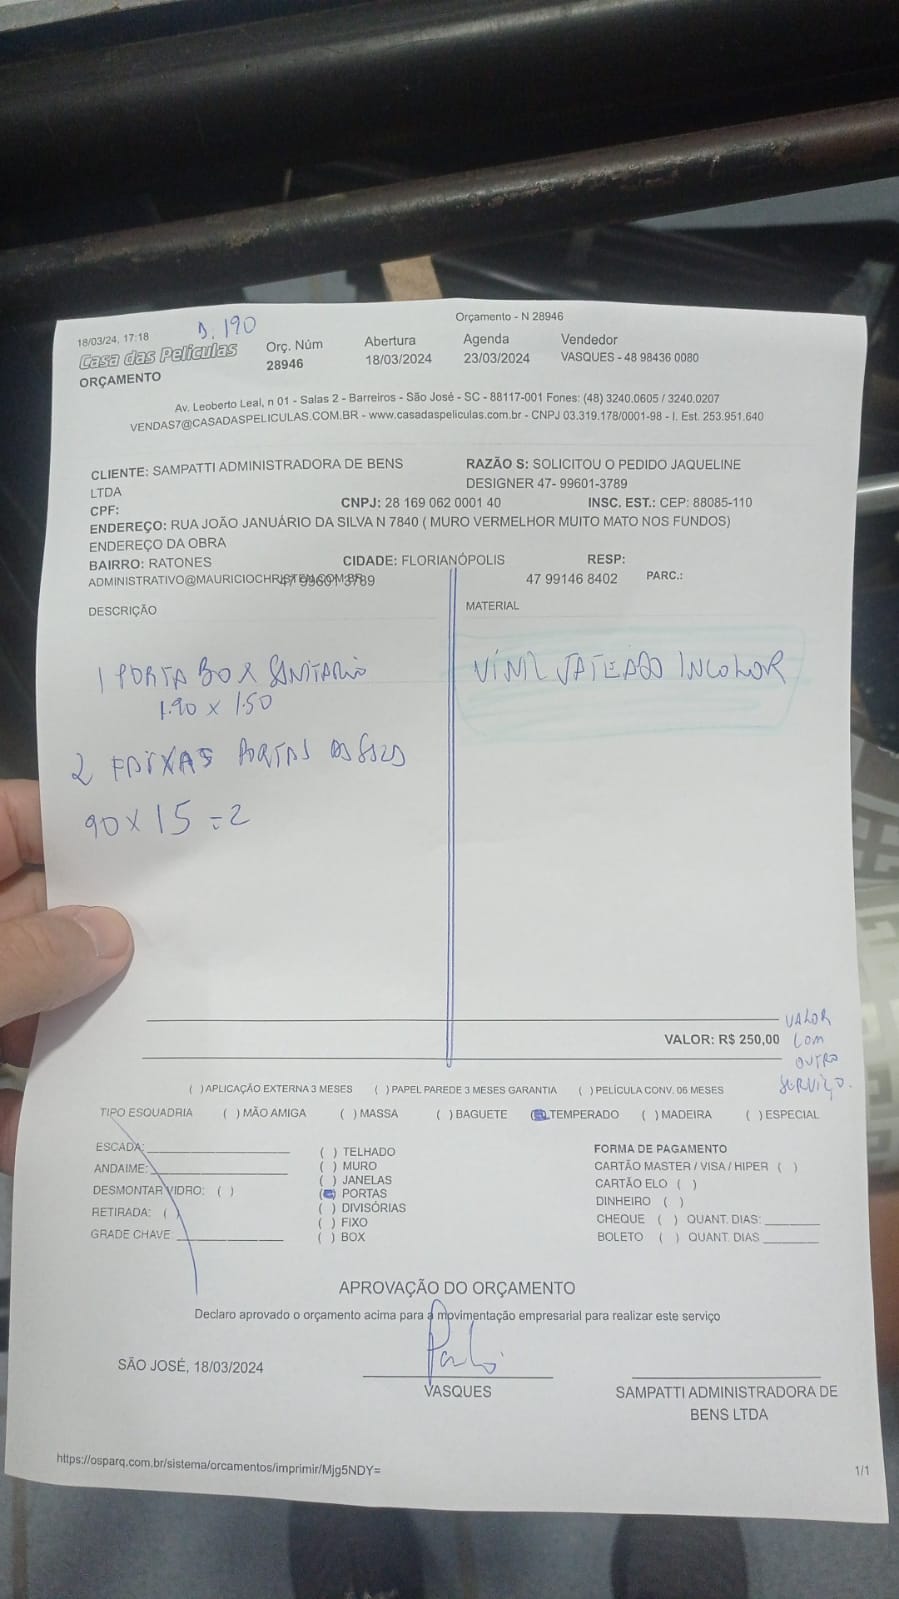 Orçamento - N 28946
18/03/24, 17:18 D. 190
Casa das Películas
ORÇAMENTO
Orç. Núm
28946
Abertura
18/03/2024
Agenda
23/03/2024
Vendedor
VASQUES - 48 98436 0080
Av. Leoberto Leal, n 01 - Salas 2 - Barreiros - São José - SC - 88117-001 Fones: (48) 3240.0605 / 3240.0207
VENDAS7@CASADASPELICULAS.COM.BR - www.casadaspeliculas.com.br - CNPJ 03.319.178/0001-98 - I. Est. 253.951.640
CLIENTE: SAMPATTI ADMINISTRADORA DE BENS
LTDA
RAZÃO S: SOLICITOU O PEDIDO JAQUELINE
DESIGNER 47- 99601-3789
CPF:
CNPJ: 28 169 062 0001 40
INSC. EST.: CEP: 88085-110
ENDEREÇO: RUA JOÃO JANUÁRIO DA SILVA N 7840 ( MURO VERMELHOR MUITO MATO NOS FUNDOS)
ENDEREÇO DA OBRA
BAIRRO: RATONES
CIDADE: FLORIANÓPOLIS
RESP:
ADMINISTRATIVO@MAURICIOCHRISTEN.COM.BR
47 99601 3789
47 99146 8402
PARC.:
DESCRIÇÃO
MATERIAL
1 PORTA BOX SANITARIO
1.90 x 1.50
2 FAIXAS PORTAS
90 x 15 = 2
VINIL JATEADO INCOLOR
VALOR: R$ 250,00
VALOR
COM
OUTRO
SERVIÇO.
( ) APLICAÇÃO EXTERNA 3 MESES ( ) PAPEL PAREDE 3 MESES GARANTIA ( ) PELÍCULA CONV. 06 MESES
TIPO ESQUADRIA ( ) MÃO AMIGA ( ) MASSA ( ) BAGUETE ( ) TEMPERADO ( ) MADEIRA ( ) ESPECIAL
ESCADA:
ANDAIME:
DESMONTAR VIDRO: ( )
RETIRADA: ( )
GRADE CHAVE:
( ) TELHADO
( ) MURO
( ) JANELAS
( ) PORTAS
( ) DIVISÓRIAS
( ) FIXO
( ) BOX
FORMA DE PAGAMENTO
CARTÃO MASTER / VISA / HIPER ( )
CARTÃO ELO ( )
DINHEIRO ( )
CHEQUE ( ) QUANT. DIAS:
BOLETO ( ) QUANT. DIAS
APROVAÇÃO DO ORÇAMENTO
Declaro aprovado o orçamento acima para a movimentação empresarial para realizar este serviço
SÃO JOSÉ, 18/03/2024
VASQUES
SAMPATTI ADMINISTRADORA DE
BENS LTDA
https://osparq.com.br/sistema/orcamentos/imprimir/Mjg5NDY=
1/1